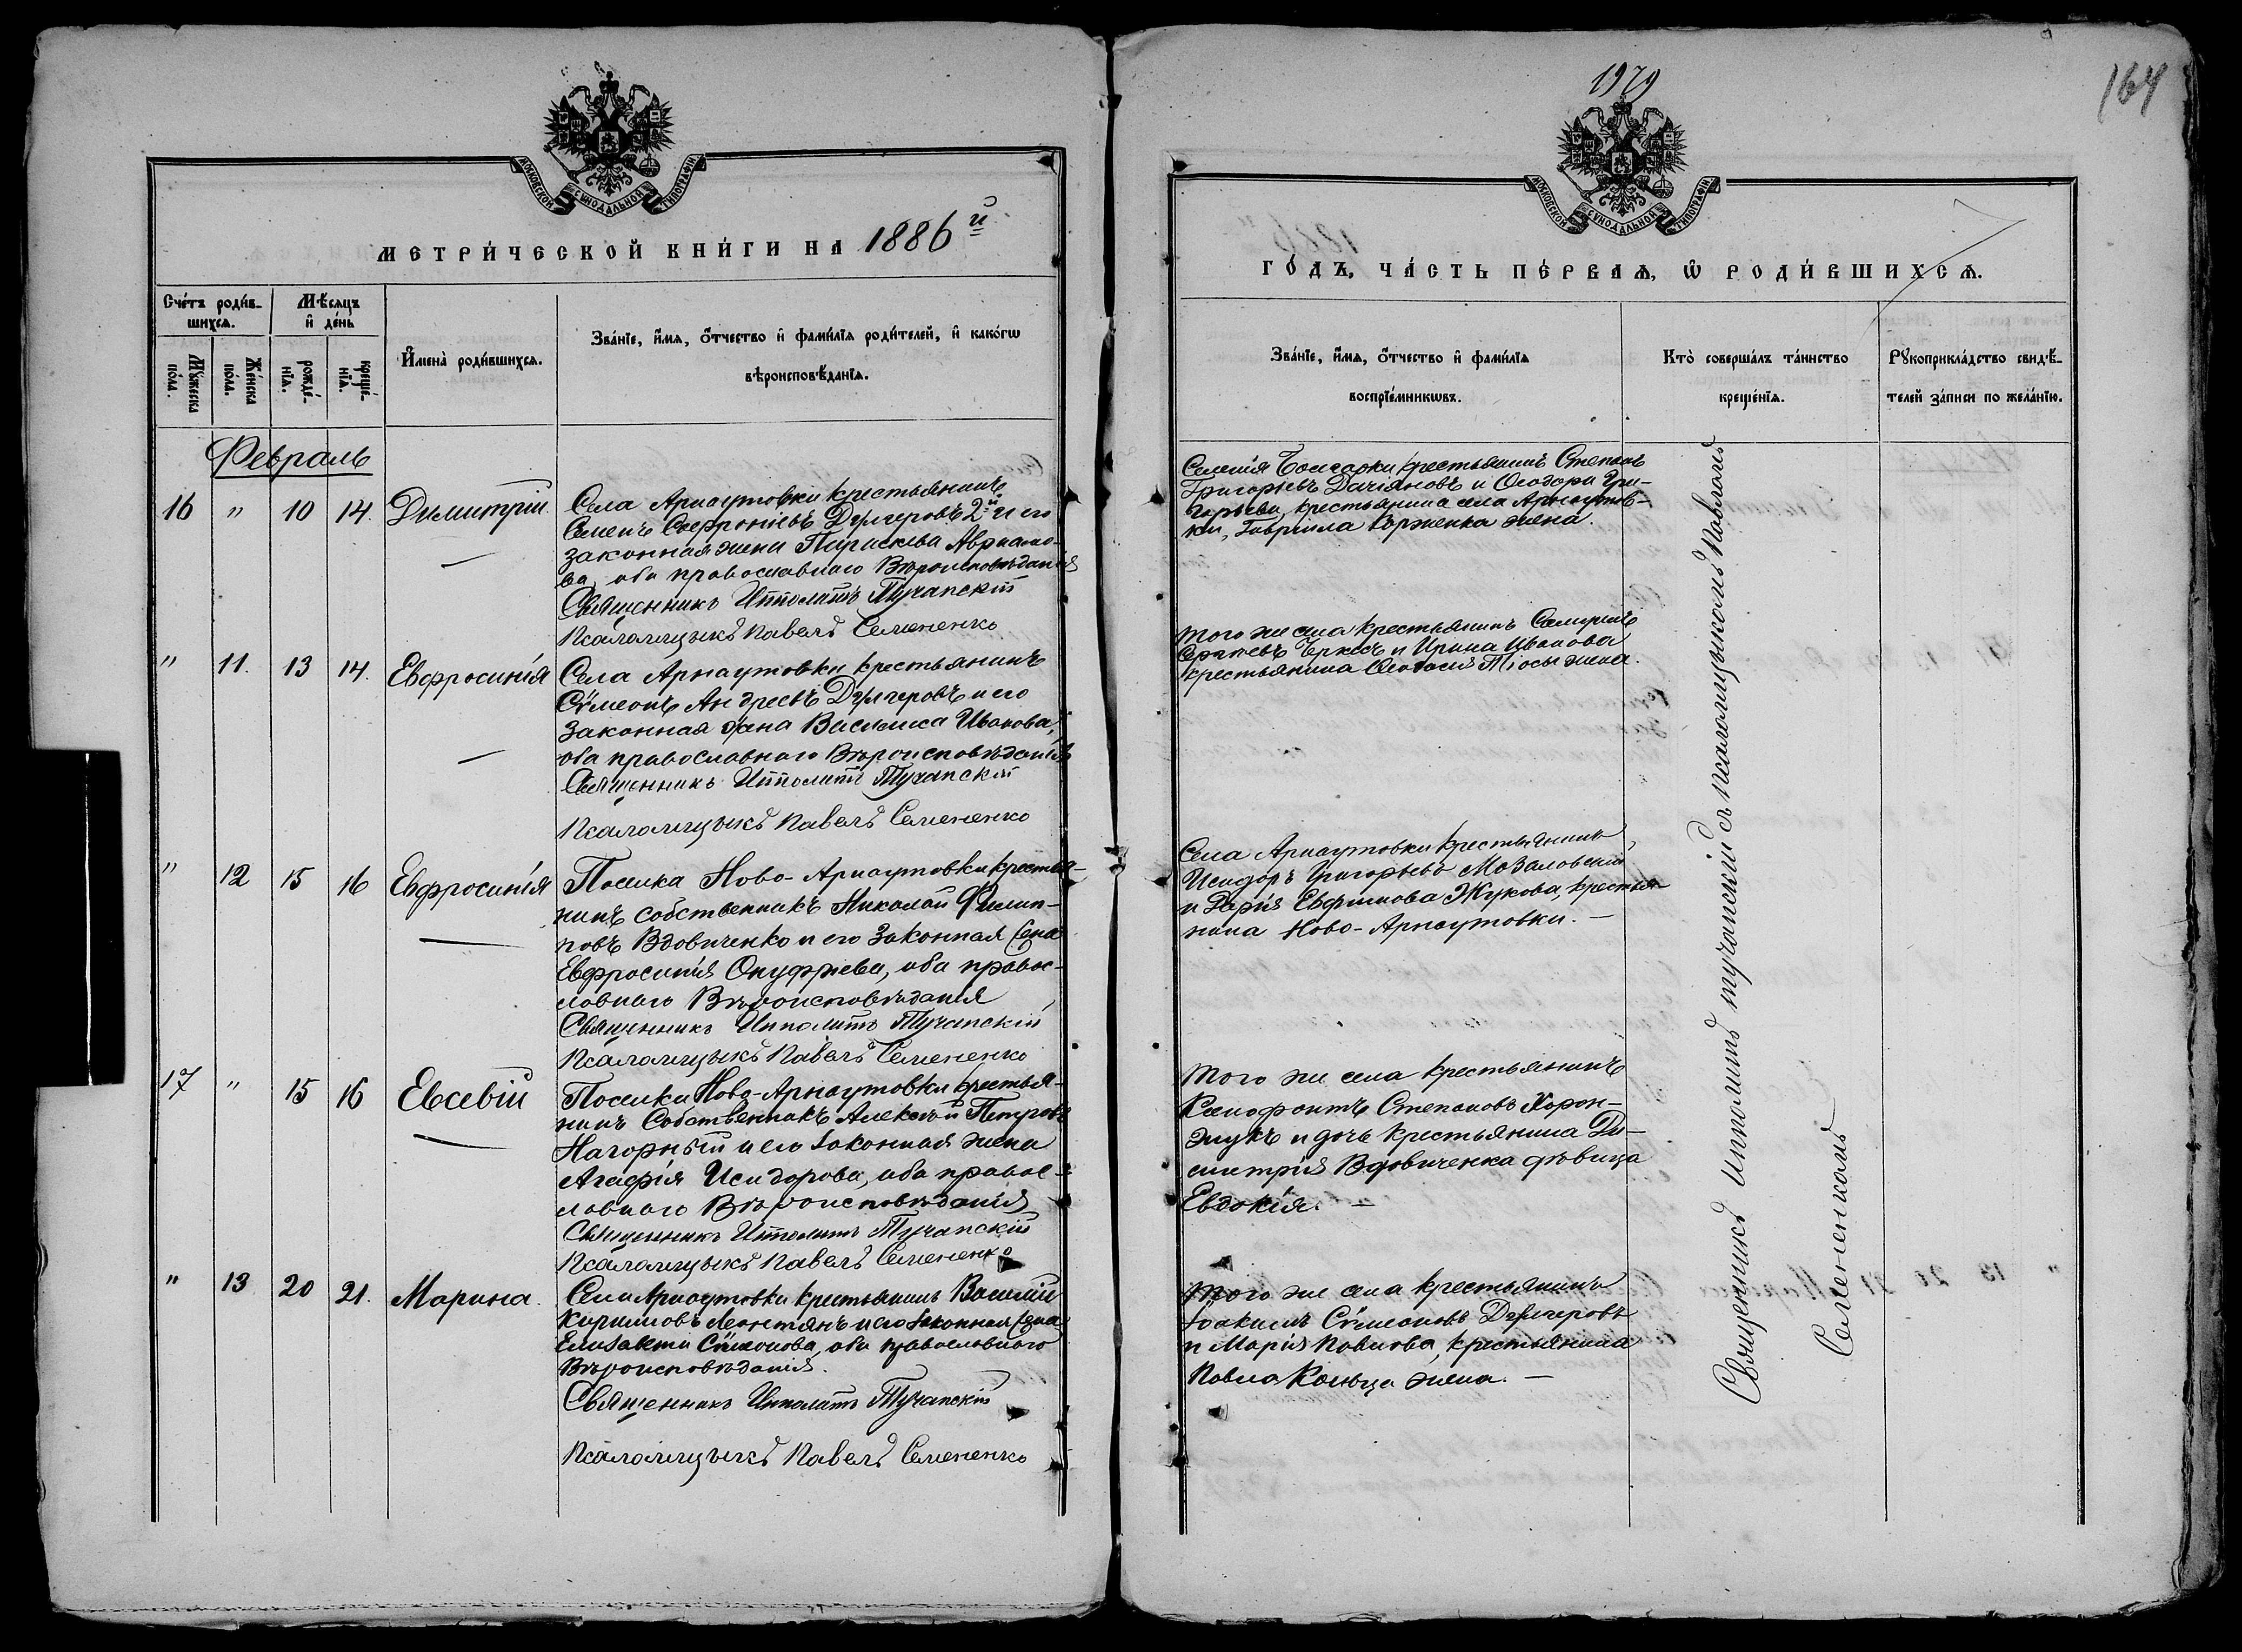 МОСКОВСКОЙ СѴНОДАЛЬНОЙ ТИПОГРАФІИ
МЕТРИ́ЧЕСКОЙ КНИ́ГИ НА 1886й
Сче́тъ роди́вшихсѧ.
Мѣ́сѧцъ и҆ де́нь
Мꙋ́жеска по́ла.
Же́нска по́ла.
рожде́нїѧ.
креще́нїѧ.
И҆мена̀ роди́вшихсѧ.
Зва́нїе, и҆́мѧ, ѻ҆́тчество и҆ фами́лїѧ роди́телей, и҆ како́гѡ
вѣроисповѣ́данїѧ.
Февраль
16 " 10 14. Димитрій
Села Арнаутовки крестьянинъ
Семенъ Софроніевъ Дулгеровъ 2й и его
законная жена Параскева Авраамо-
ва, оба православнаго Вѣроисповѣданія
Священникъ Ипполитъ Тучапскій
Псаломщикъ Павелъ Семененко
" 11. 13 14. Евфросинія
Села Арнаутовки крестьянинъ
Сѵмеонъ Андреевъ Дулгеровъ и его
Законная жена Василиса Иванова,
оба православнаго Вѣроисповѣданія
Священникъ Ипполитъ Тучапскій
Псаломщикъ Павелъ Семененко
" 12 15 16 Евфросинія
Поселка Ново-Арнаутовки крестья-
нинъ собственникъ Николай Филип-
повъ Вдовиченко и его Законная жена
Евфросинія Онуфріева, оба правос-
лавнаго Вѣроисповѣданія
Священникъ Ипполитъ Тучапскій
Псаломщикъ Павелъ Семененко
17 " 15 16 Евсевій
Поселка Ново-Арнаутовки крестья-
нинъ Собственникъ Алексѣй Петровъ
Нагорный и его Законная жена
Агафія Исидорова, оба правос-
лавнаго Вѣроисповѣданія
Священникъ Ипполитъ Тучапскій
Псаломщикъ Павелъ Семененко
" 13 20 21. Марина.
Села Арнаутовки крестьянинъ Василій
Кирилловъ Леонтянъ и его Законная жена
Елизавета Сѵмеонова, оба православнаго
Вѣроисповѣданія.
Священникъ Ипполитъ Тучапскій
Псаломщикъ Павелъ Семененко
1979
164
МОСКОВСКОЙ СѴНОДАЛЬНОЙ ТИПОГРАФІИ
ГО́ДЪ, ЧА́СТЬ ПЕ́РВАѦ, Ѡ҆ РОДИ́ВШИХСѦ.
Зва́нїе, и҆́мѧ, ѻ҆́тчество и҆ фами́лїѧ
воспрїе́мникѡвъ.
Кто̀ соверша́лъ та́инство
креще́нїѧ.
Рꙋкоприкла́дство свидѣ́-
телей за́писи по жела́нїю.
Селенія Болгарки крестьянинъ Степанъ
Григорьевъ и Ѳеодора Гри-
горьева, крестьянина села Арнаутов-
ки, Гавріила Корженка жена.
Того же села крестьянинъ
Сергѣевъ Черкесъ и Ирина Иванова
крестьянина Ѳеодосія жена.
Села Арнаутовки крестьянинъ
Исидоръ Григорьевъ Мозаловскій
и Дарія Евфимова Жукова, крестья-
нина Ново-Арнаутовки. —
Того же села крестьянинъ
Ксенофонтъ Степановъ Харон-
жукъ и дочь крестьянина Ди-
митрія Вдовиченка дѣвица
Евдокія. —
Того же села крестьянинъ
Іоакимъ Сѵмеоновъ Дулгеровъ
и Марія Павлова, крестьянина
Павла Кольца жена. —
Священникъ Ипполитъ Тучапскій съ псаломщикомъ Павломъ
Семененкомъ